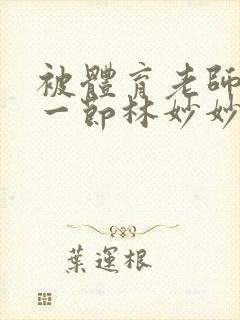 被體育老師
一節林妙妙
葉運根